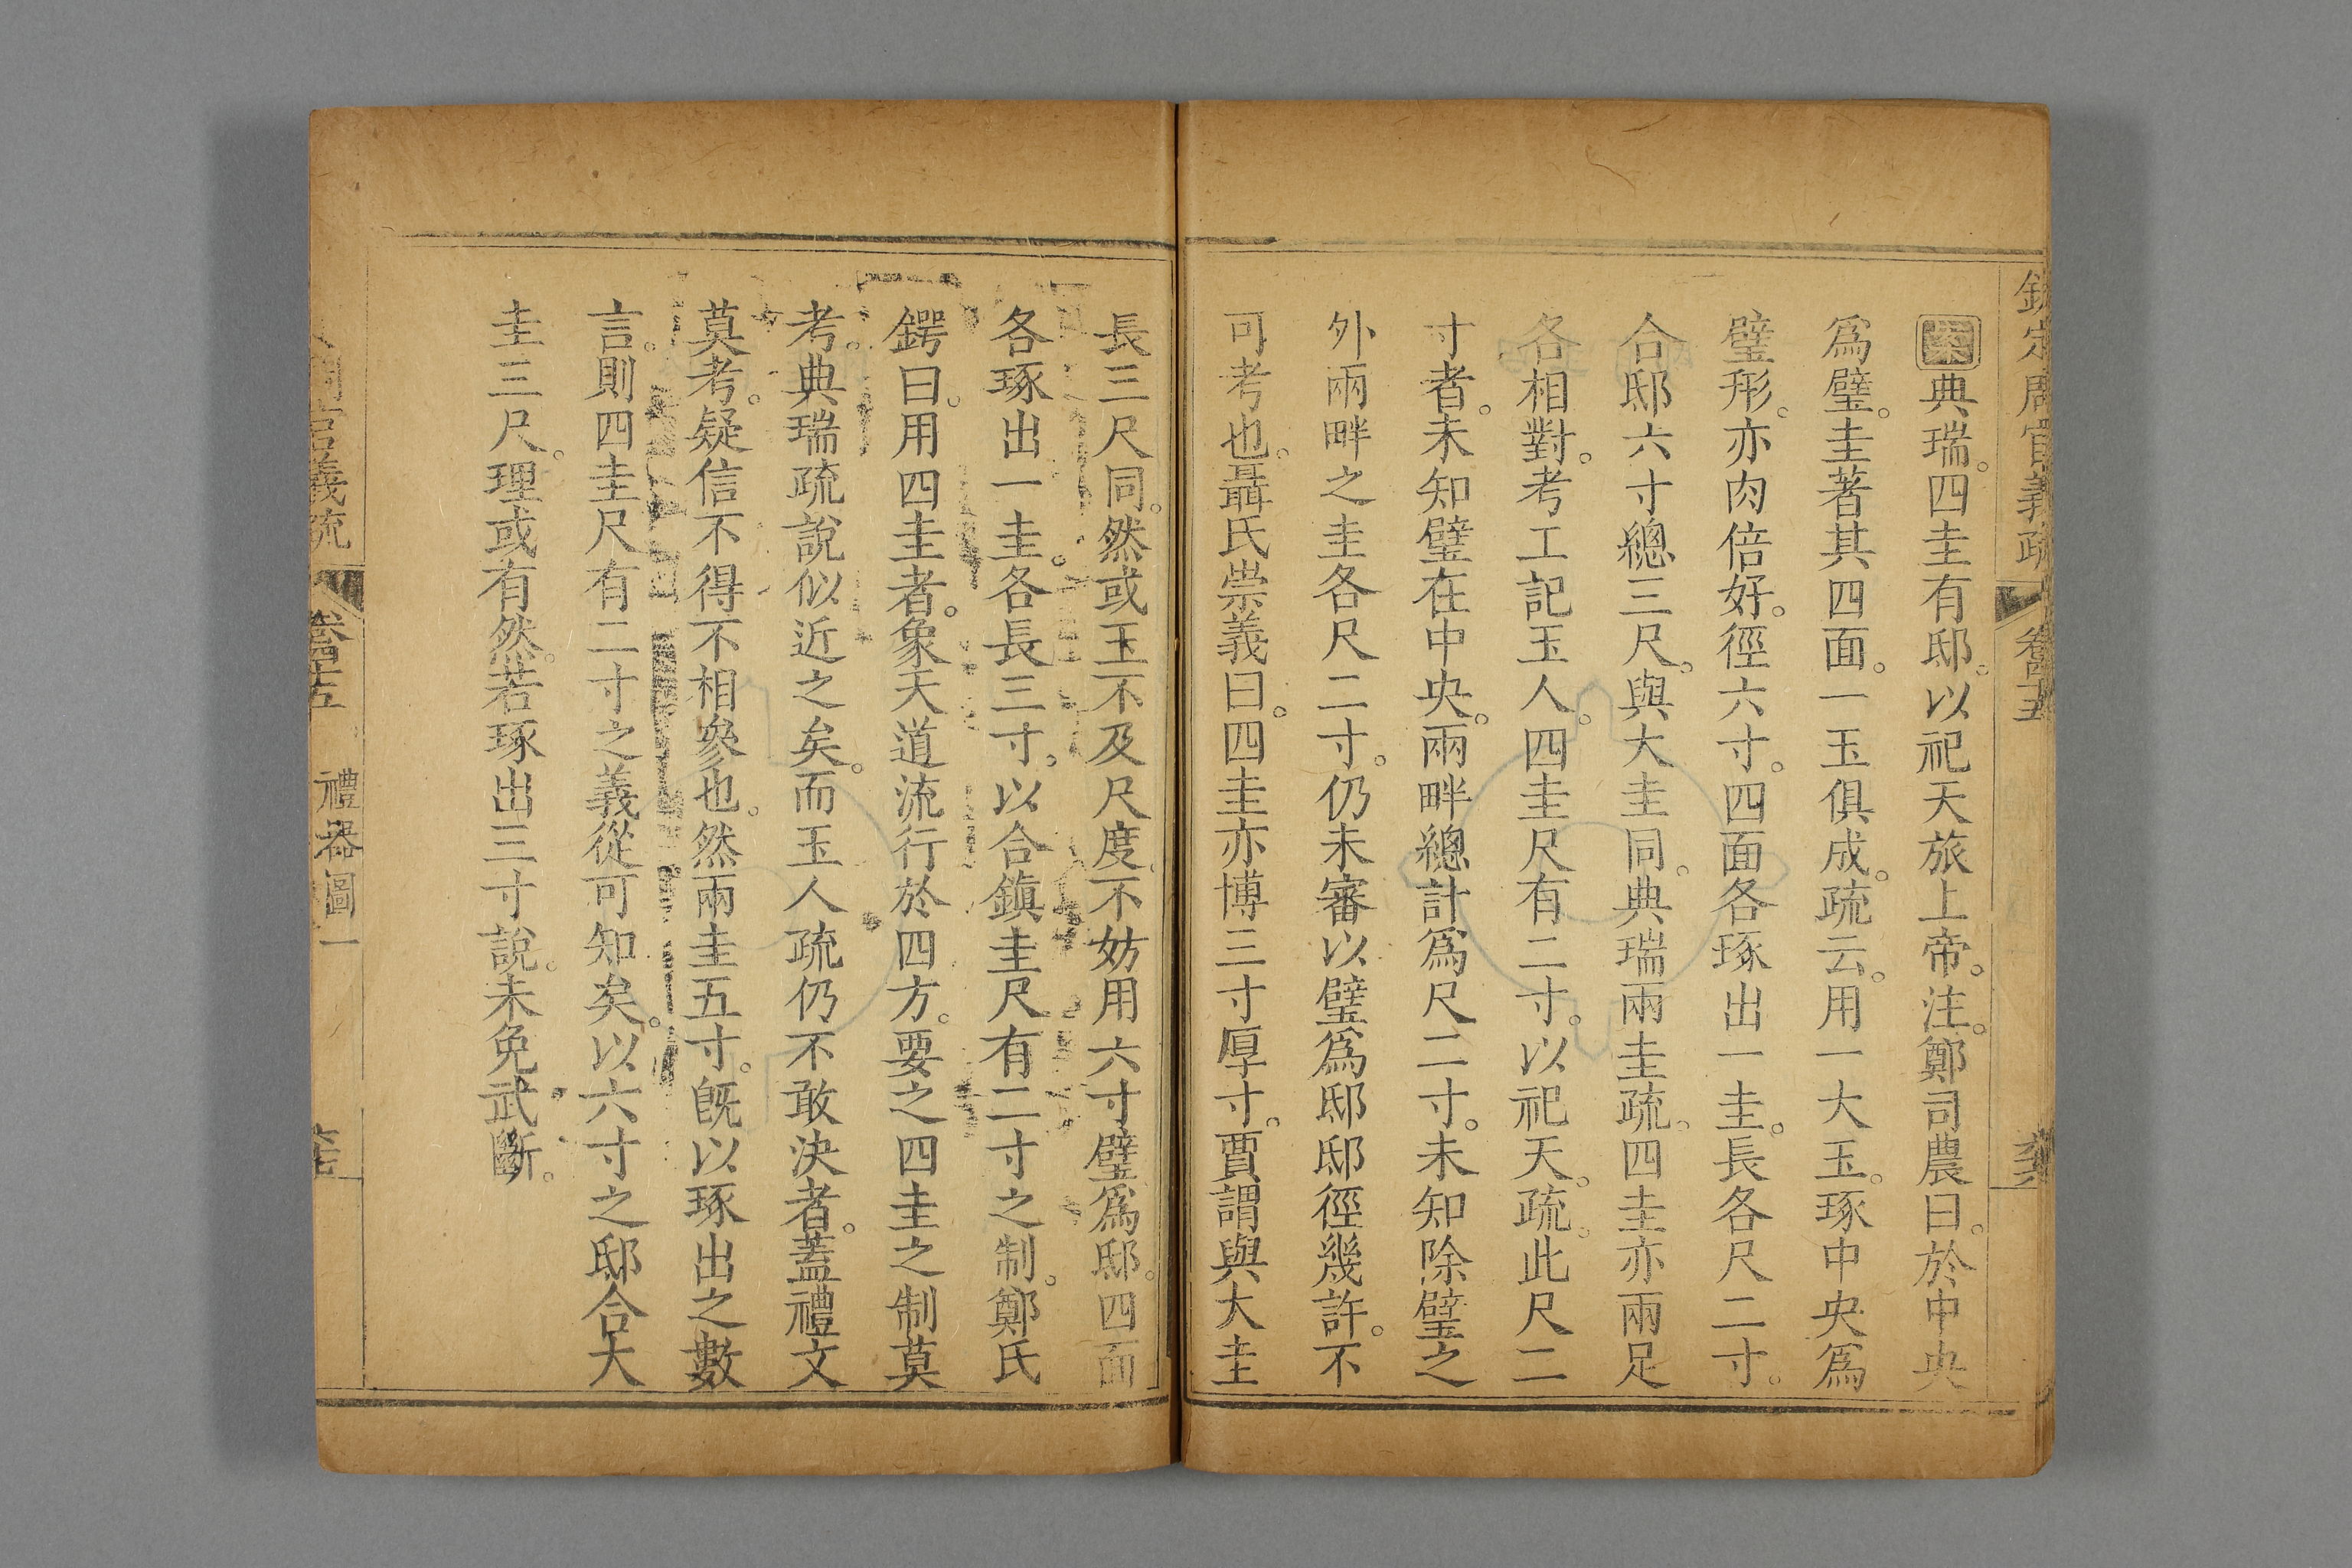 欽定周官義疏 卷四十五
案典瑞。四圭有邸。以祀天旅上帝。注。鄭司農曰。於中央
爲璧。圭著其四面。一玉俱成。疏云。用一大玉。琢中央爲
璧形。亦肉倍好。徑六寸。四面各琢出一圭。長各尺二寸。
合邸六寸總三尺。與大圭同。典瑞兩圭疏。四圭亦兩足
各相對。考工記玉人。四圭尺有二寸。以祀天。疏。此尺二
寸者。未知璧在中央。兩畔總計爲尺二寸。未知除璧之
外兩畔之圭各尺二寸。仍未審以璧爲邸邸徑幾許。不
可考也。聶氏崇義曰。四圭亦博三寸厚寸。賈謂與大圭
長三尺同。然或玉不及尺度。不妨用六寸璧爲邸。四面
各琢出一圭。各長三寸。以合鎮圭尺有二寸之制。鄭氏
鍔曰。用四圭者。象天道流行於四方。要之四圭之制莫
考。典瑞疏說似近之矣。而玉人疏仍不敢決者。蓋禮文
莫考。疑信不得不相參也。然兩圭五寸。旣以琢出之數
言。則四圭尺有二寸之義從可知矣。以六寸之邸合大
圭三尺。理或有然。若琢出三寸說。未免武斷。
周官義疏 卷四十五 禮器圖一